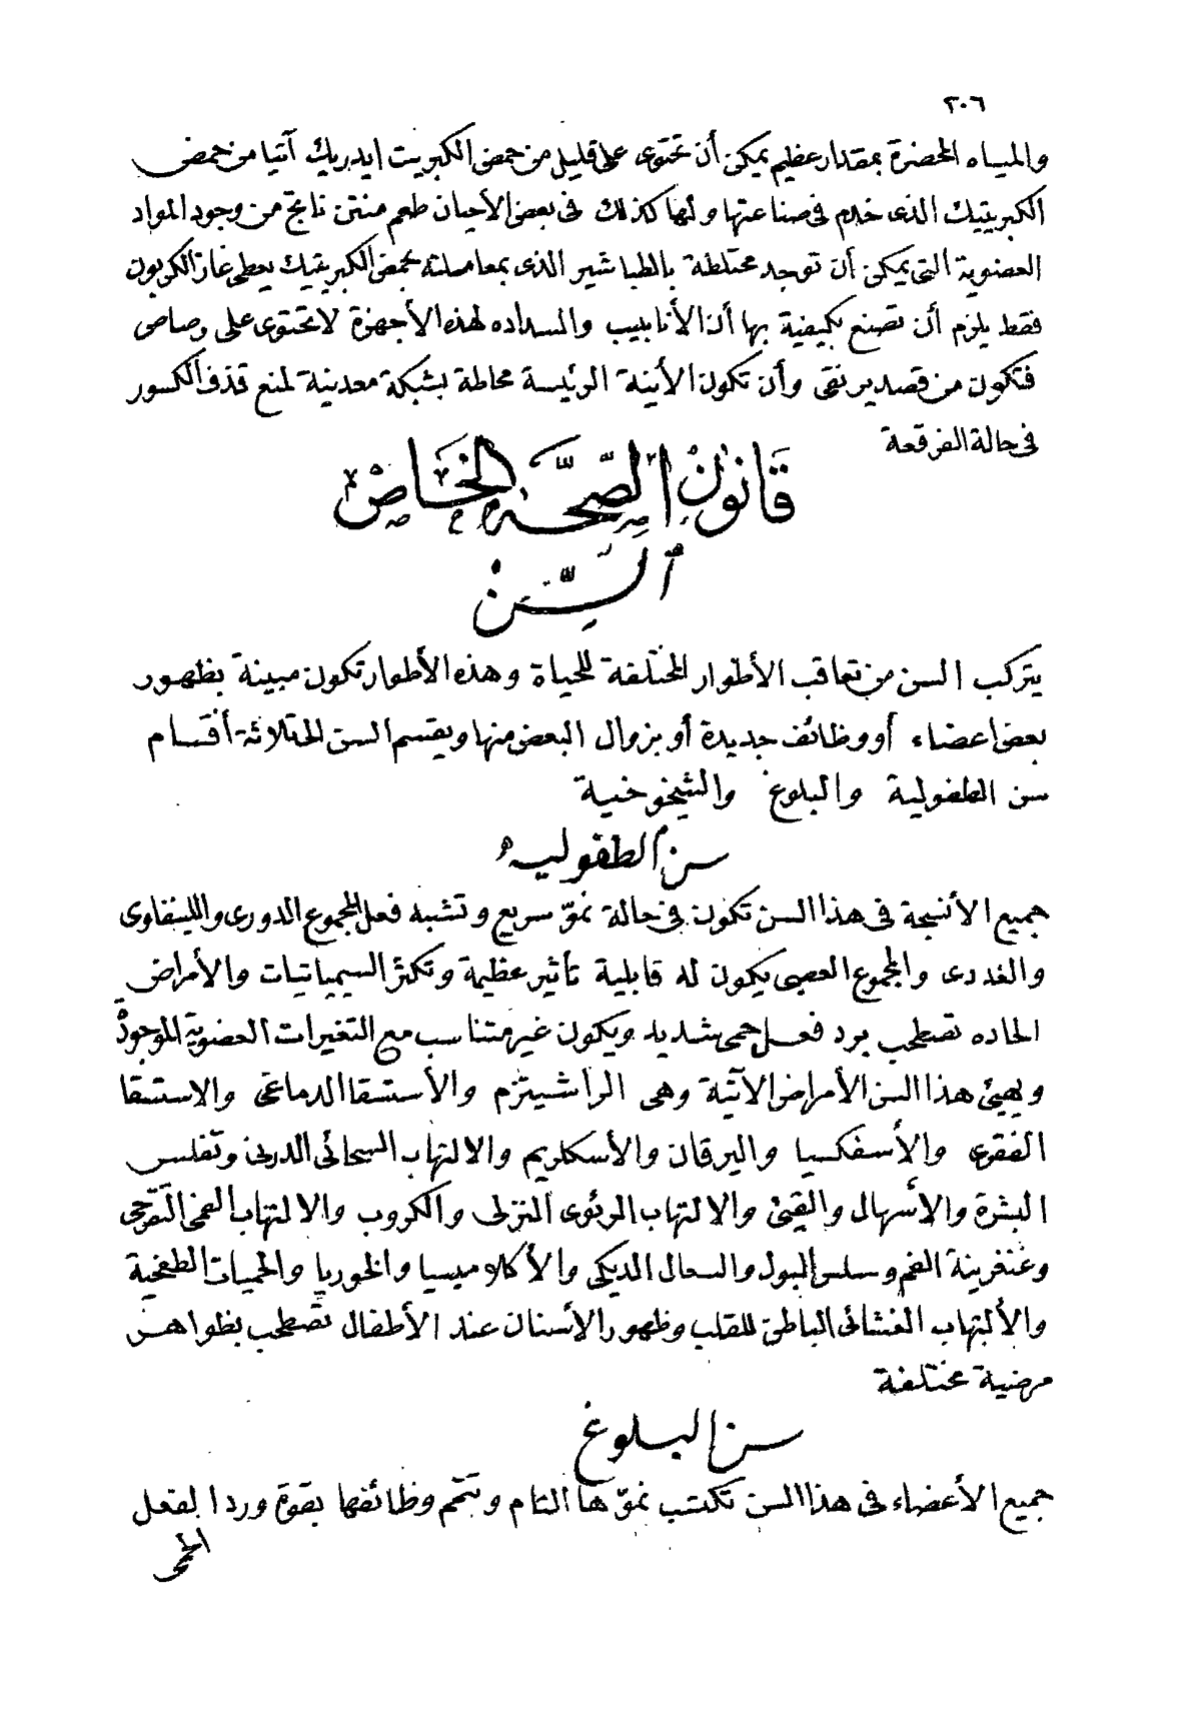 ٢٠٦
والمياه المحضرة بمقدار عظيم يمكن أن تحتوى على قليل من حمض الكبريت ايدريك آتيا من حمض
الكبريتيك الذى خدم فى صناعتها ولها كذلك فى بعض الأحيان طعم منتن ناتج من وجود المواد
العضوية التى يمكن أن توجد مختلطة بالطباشير الذى بمعاملته بحمض الكبريتيك يعطى غاز الكربون
فقط يلزم أن تصنع بكيفية بها أن الأنابيب والسداده لهذه الأجهزة لا تحتوى على رصاص
فتكون من قصدير نقى وأن تكون الأينة الرئيسة محاطة بشبكة معدنية لمنع قذف الكسور
فى حالة الفرقعة
قَانُونُ الصِّحَّةِ الخَاصْ
السِّنْ
يتركب السن من تعاقب الأطوار المختلفة للحياة وهذه الأطوار تكون مبينة بظهور
بعض اعضاء أو وظائف جديدة أو بزوال البعض منها ويقسم السن الى ثلاثة أقسام
سن الطفولية والبلوغ والشيخوخية
سن الطفوليه
جميع الأنسجة فى هذا السن تكون فى حالة نموّ سريع وتشبه فعل المجموع الدورى واللينفاوى
والغددى والمجموع العصبى يكون له قابلية تأثير عظيمة وتكثر السيمپاتيات والأمراض
الحاده تصطحب برد فعل حمى شديد ويكون غير متناسب مع التغيرات العضوية الموجودة
ويهيئ هذا السن الأمراض الآتية وهى الراشيتزم والأستسقا الدماغى والاستسقا
الفقرى والأسفكسيا واليرقان والأسكلريم والالتهاب السحائى الدرنى وتفلس
البشرة والأسهال والقيئ والالتهاب الرئوى النزلى والكروب والالتهاب الفمى التقرحى
وغنغرينة الفم وسلس البول والسعال الديكى والأكلامبسيا والخوريا والحميات الطفحية
والألتهاب الغشائى الباطنى للقلب وظهور الأسنان عند الأطفال تصطحب بظواهر
مرضية مختلفة
سن البلوغ
جميع الأعضاء فى هذا السن تكتسب نموّها التام وتتمم وظائفها بقوة ورد الفعل
الحمى